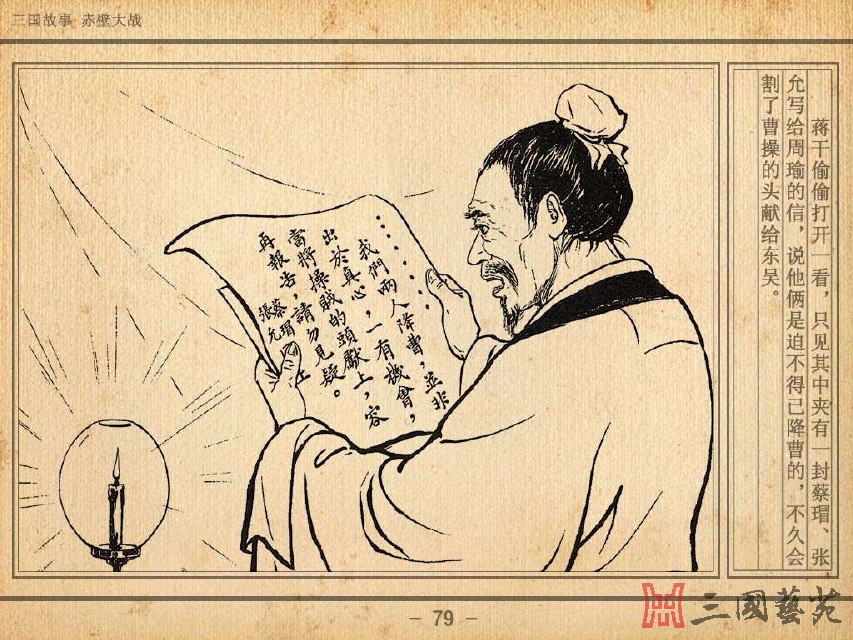 三国故事 赤壁大战
……我們兩人降曹，並非
出於真心，一有機會，
當將操賊的頭獻上，容
再報告，請勿見疑。
蔡瑁
張允 上
蒋干偷偷打开一看，只见其中夹有一封蔡瑁、张
允写给周瑜的信，说他俩是迫不得已降曹的，不久会
割了曹操的头献给东吴。
- 79 -
三國藝苑